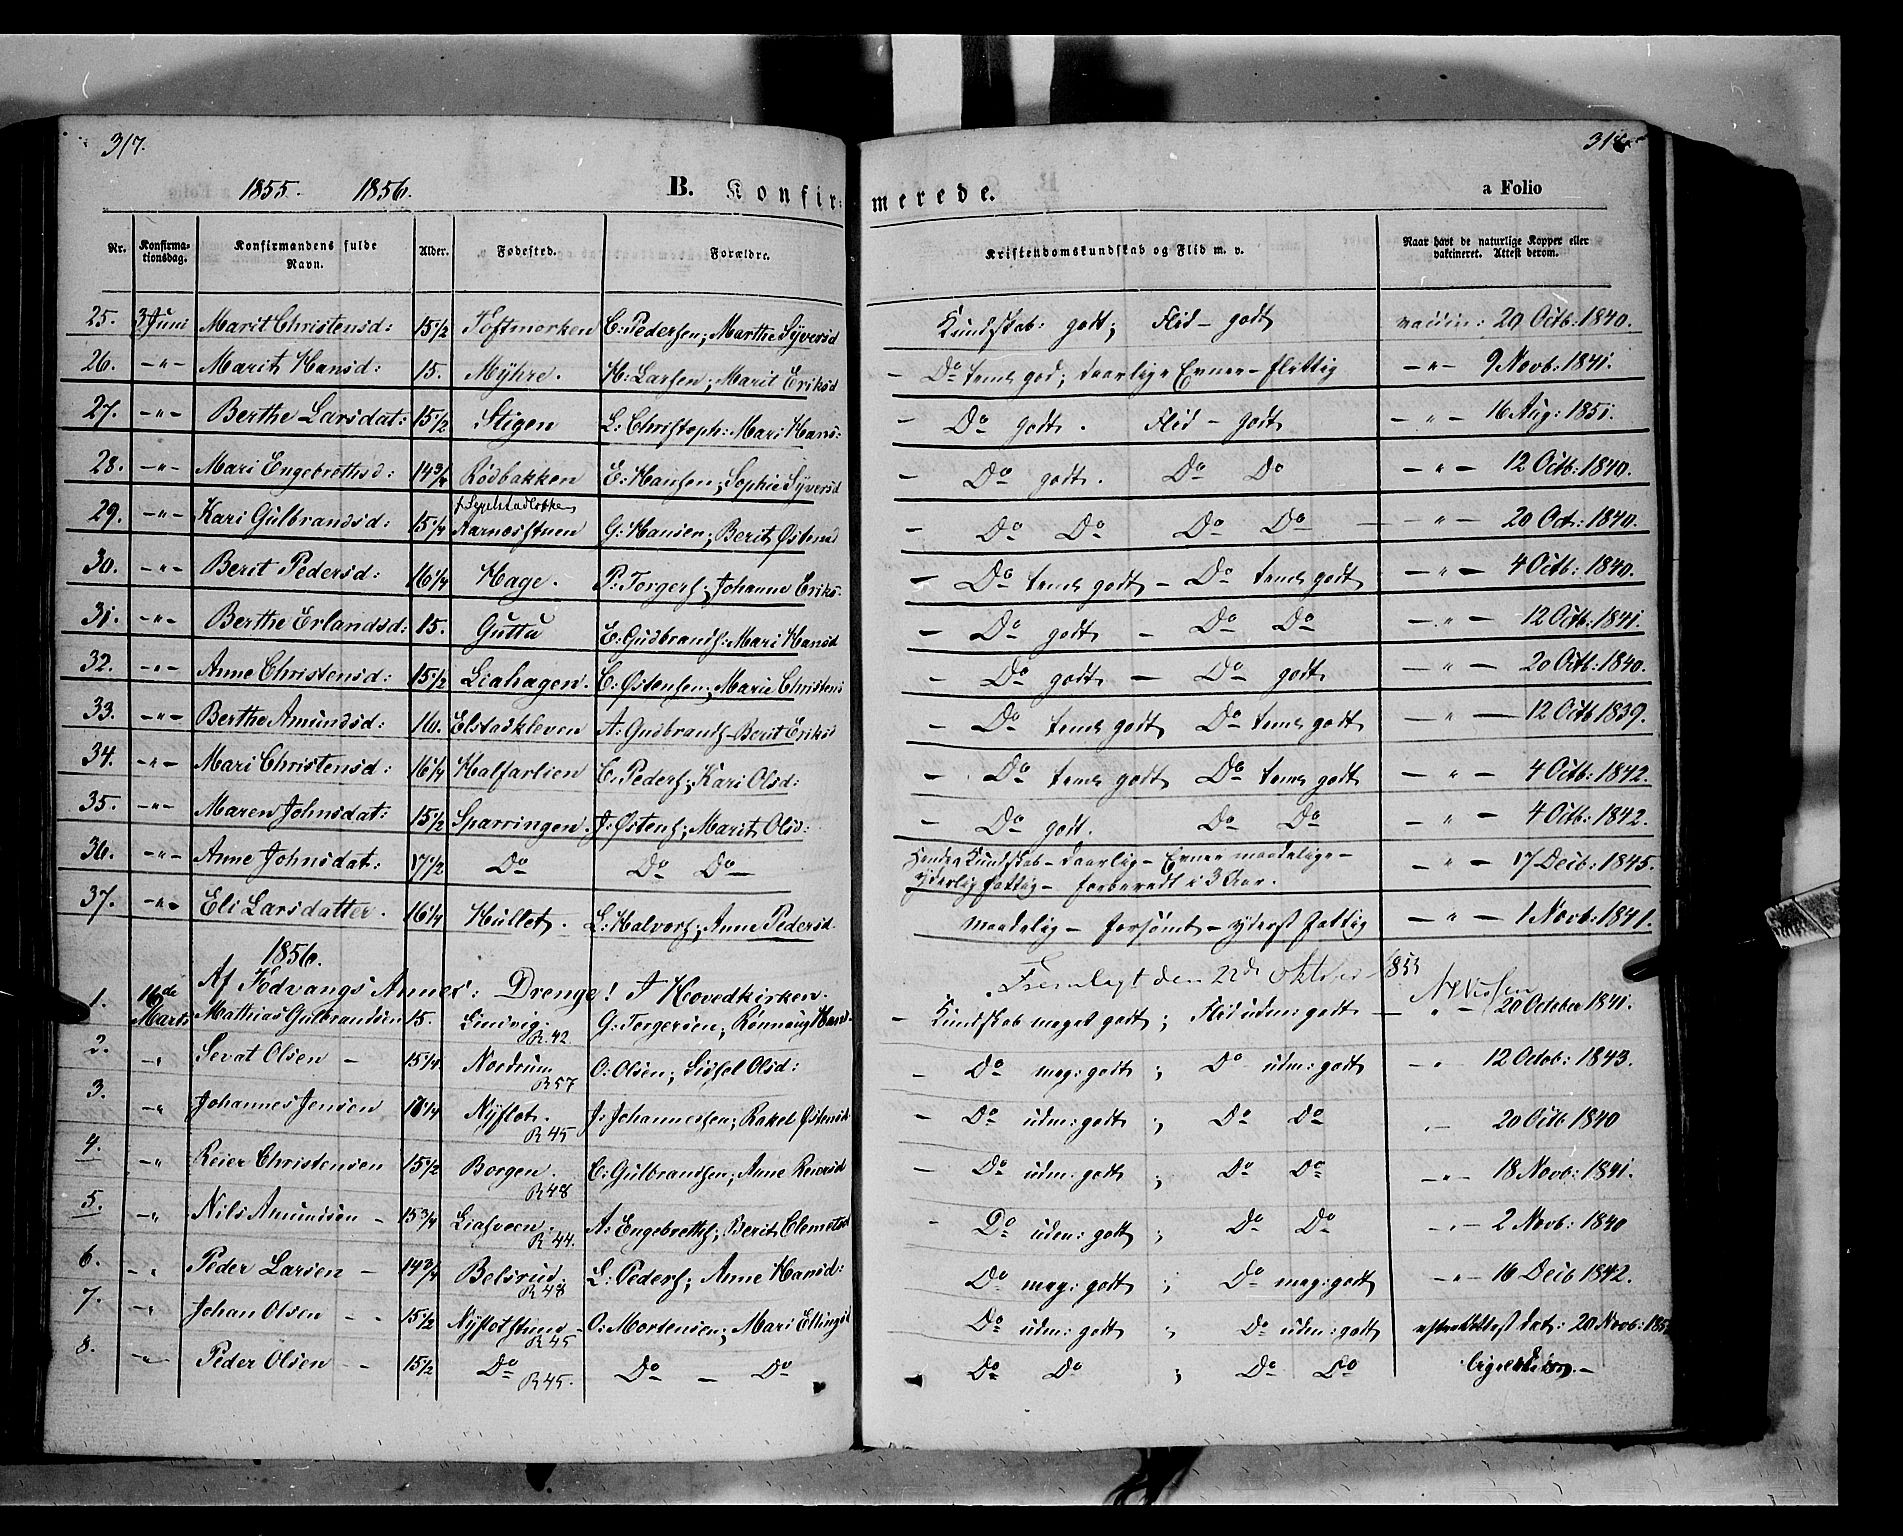 317.
318
1855. 1856.
B. Konfirmerede.
a Folio
Nr. Konfirmationsdag. Konfirmandens fulde Navn. Alder. Fødested. Forældre. Kristendomskundskab og Flid m. v. Naar havt de naturlige Kopper eller vaktineret. Attest derom.
25. 3 Juni Marit Christensd: 15 1/2 Toftmorken C: Pedersen; Marthe Syversd Kundskab: godt; Flid - godt vaccin: 29 Octb: 1840.
26. -"- Marit Hansd: 15. Myhre. H: Larsen; Marit Eriksd - Do tems god; daarlige Evner - flittig -"- 9 Novb: 1841.
27. -"- Berthe Larsdat: 15 1/2 Stigen L: Christoph: Mari Hans: - Do godt. Flid - godt -"- 16 Aug: 1851.
28. -"- Mari Engebrethsd: 14 3/4 Rødbakken E: Hansen; Sophie Syversd - Do godt. Do Do -"- 12 Octb: 1840.
29. -"- Kari Gulbrandsd: 15 1/4 Aarnesstuen G: Hansen; Berit Østensd - Do Do Do Do -"- 20 Oct: 1840.
30. -"- Berit Pedersd: 16 1/4 Hage. P: Torgers; Johanne Eriks: - Do tems godt - Do tems godt -"- 4 Octb: 1840.
31. -"- Berthe Erlandsd: 15. Guttu E: Gudbrands: Mari Hansd - Do godt - Do Do -"- 12 Octb: 1841.
32. -"- Anne Christensd: 15 1/2 Liahagen. C: Østensen; Marie Christens - Do godt - Do godt -"- 20 Octb: 1840.
33. -"- Berthe Amundsd: 16. Elstadkleven A: Gudbrands - Berit Eriksd - Do tems godt Do tems godt -"- 12 Octb 1839.
34. -"- Mari Christensd: 16 1/4 Halfarlien C: Peders; Kari Olsd: - Do tems godt Do tems godt -"- 4 Octb: 1842.
35. -"- Maren Johnsdat: 15 1/2 Sparringen. J: Østens; Marit Olsd: - Do godt. Do Do -"- 4 Octb: 1842.
36. -"- Anne Johnsdat: 17 1/2 Do Do Do Kundskab - daarlig - Evner maadelige - -"- 17 Decb: 1845.
yderlig fattig - forberedt i 3 Aar.
37. -"- Eli Larsdatter. 16 1/4 Hullet. L: Halvors; Anne Pedersd. maadelig - forsømt - yderst fattig -"- 1 Novb: 1841.
1856.
Fremlagt den 22de Oktber 1855
Af Fodvangs Annex: Drenge! I Hovedkirken.
1. 16de Marts Mathias Gulbrandsen 15. Lindvig. R. 42 G: Torgersen; Rønnaug Hans - Kundskab meget godt; Flid udm: godt -"- 20 October 1841.
2. " Sevat Olsen - 15 1/4 Nordrum R 57 O: Olsen; Sidsel Olsd: - Do meg: godt; Do udm: godt -" 12 Octob: 1843.
3. -" Johannes Jensen 16 1/4 Nyflot. R 45 J: Johannessen; Rakel Østensd - Do udm: godt; Do Do 20 Octb 1840
4. -" Reier Christensen 15 1/2 Borgen R 48 C: Gulbrandsen; Anne Reiersd - Do udm: godt; Do Do -"- 18 Novb: 1841.
5. -" Nils Amundsen - 15 3/4 Liasveen. R 44. A: Engebreths; Berit Clemetsd - Do udm: godt; Do Do -"- 2 Novb: 1840
6. -" Peder Larsen - 14 3/4 Belsrud. R 48 L: Peders; Anne Hansd: Do meg: godt; Do meg: godt -"- 16 Decb 1842.
7. -" Johan Olsen - - 15 1/2 Nyflotstuen - R 45 O: Mortensen; Mari Ellingsd Do udm: godt " Do udm: godt Attest dat: 20 Novb: 185
8. -" Peder Olsen - - 15 1/2 Do R 45. Do - Do Do Do ; Do Do